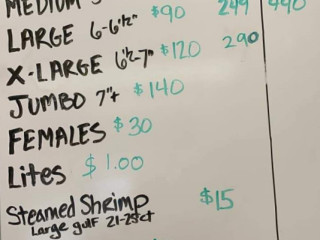 MEDIUM
LARGE 6-6½" $90 249 440
X-LARGE 6½-7" $120 290
JUMBO 7"+ $140
FEMALES $30
Lites $1.00
Steamed Shrimp $15
Large gulf 21-25ct